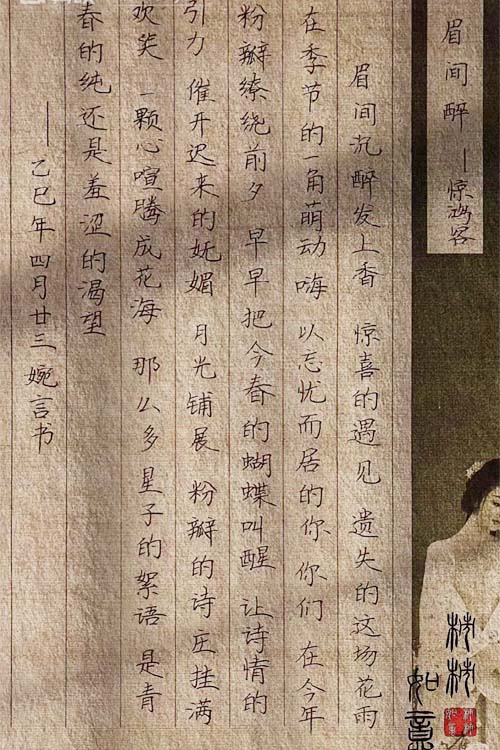 眉间醉 — 惊鸿客
眉间沉醉发上香 惊喜的遇见 遗失的这场花雨
在季节的一角萌动 嗨 以忘忧而居的你 你们 在今年
粉瓣缭绕前夕 早早把今春的蝴蝶叫醒 让诗情的
引力 催开迟来的妩媚 月光铺展 粉瓣的诗 压挂满
欢笑 一颗心喧腾成花海 那么多星子的絮语 是青
春的纯还是羞涩的渴望
——乙巳年四月廿三婉言书
如意